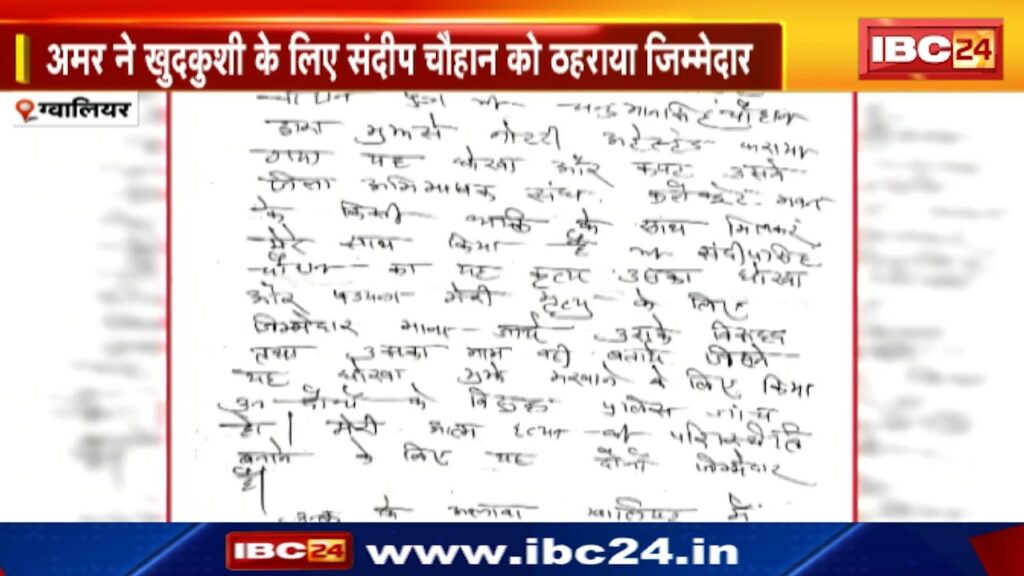 अमर ने खुदकुशी के लिए संदीप चौहान को ठहराया जिम्मेदार
IBC24
ग्वालियर
द्वारा मुझसे नोटरी अटेस्टेड कराया
गया यह धोखा और कपट उसने
जिला अभिभाषक संघ
के किसी व्यक्ति के साथ मिलकर
मेरे साथ किया है संदीप सिंह
चौहान का यह कृत्य उसका धोखा
और मेरी मृत्यु के लिए
जिम्मेदार माना जाये उसके विरुद्ध
तथा उसका नाम वही बताये जिसने
यह धोखा मुझे मरवाने के लिए किया
उन दोनों के विरुद्ध पुलिस जांच
हो। मेरी आत्म हत्या की परिस्थिति
बनाने के लिए यह दोनों जिम्मेदार
है।
के अलावा ग्वालियर में
IBC24 www.ibc24.in